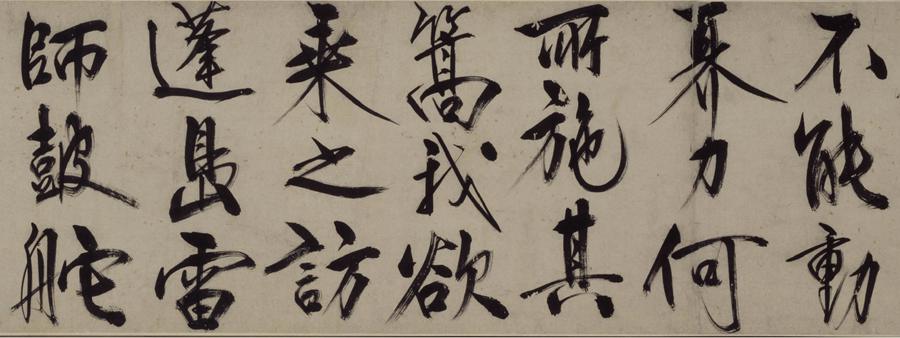 不能動
奡力何
所施其
篙我欲
乘之訪
蓬島雷
師皷舵